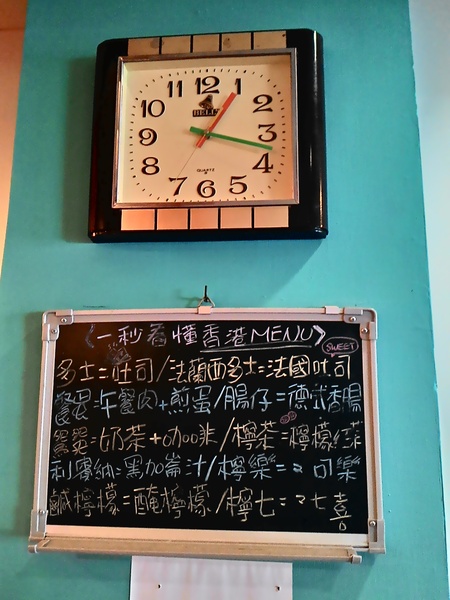 11 12 1
10 2
9 3
8 4
7 6 5
BELL
QUARTZ
《一秒看懂香港MENU》
SWEET
多士=吐司/法蘭西多士=法國吐司
餐蛋=午餐肉+煎蛋/腸仔=德式香腸
鴛鴦=奶茶+咖啡/檸茶=檸檬紅茶
利賓納=黑加崙汁/檸樂=可樂
鹹檸檬=醃檸檬/檸七=七喜